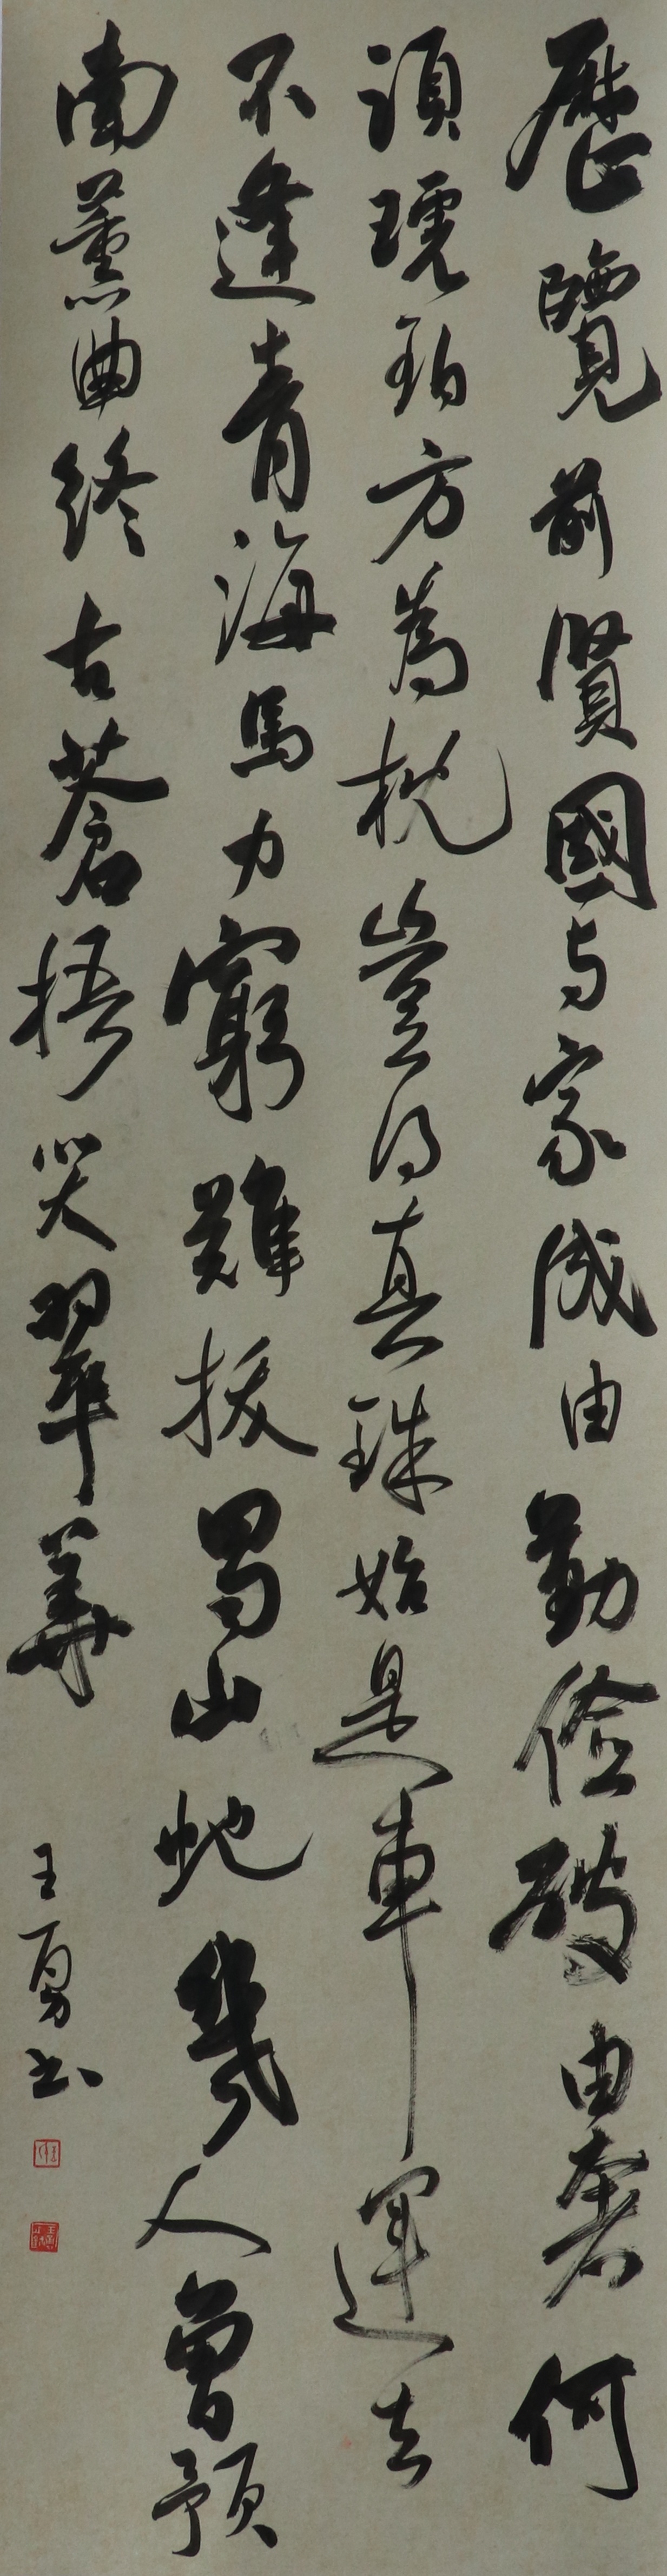 歷覽前賢國与家成由勤儉破由奢何
須琥珀方為枕豈得真珠始是車運去
不逢青海馬力窮難拔蜀山虵幾人曾預
南薰曲終古蒼梧哭翠華
王勇书